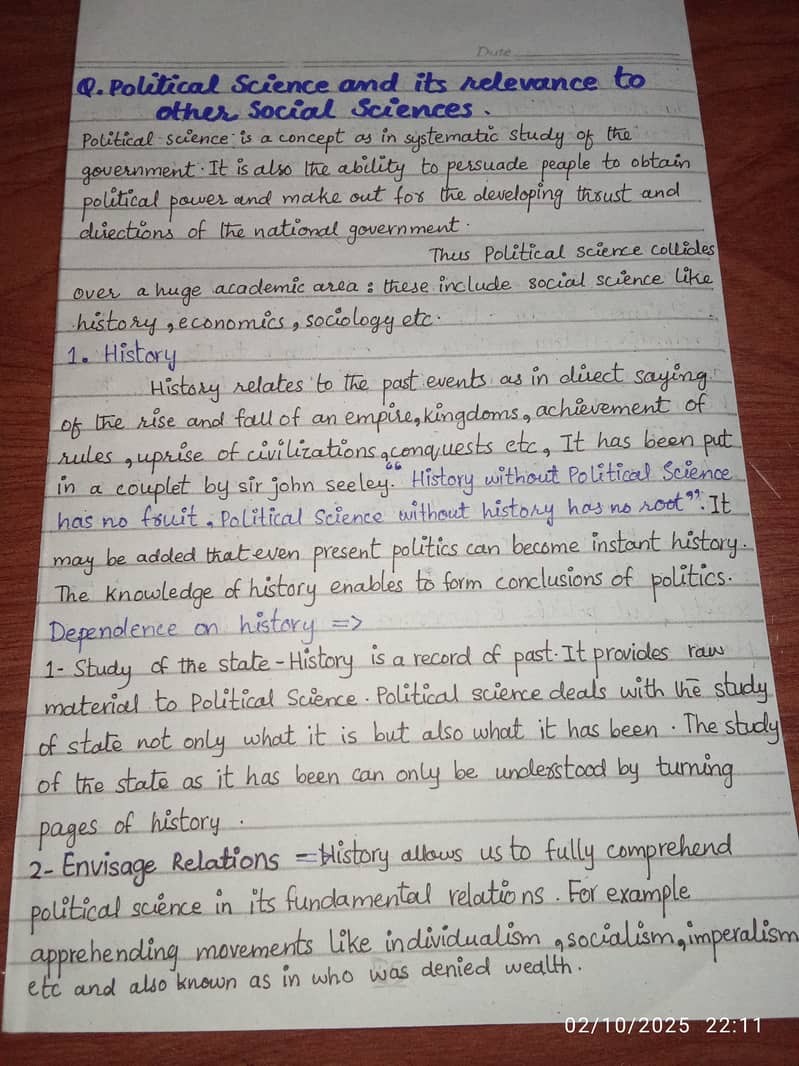 Date
Q. Political Science and its relevance to
other Social Sciences.
Political science is a concept as in systematic study of the
government. It is also the ability to persuade peaple to obtain
political power and make out for the developing thrust and
directions of the national government.
Thus Political science collides
over a huge academic area : these include social science like
history, economics, sociology etc.
1. History
History relates to the past events as in direct saying
of the rise and fall of an empire, kingdoms, achievement of
rules, uprise of civilizations, conquests etc, It has been put
in a couplet by sir john seeley. "History without Political Science
has no fruit, Political Science without history has no root". It
may be added that even present politics can become instant history.
The knowledge of history enables to form conclusions of politics.
Dependence on history =>
1- Study of the state - History is a record of past. It provides raw
material to Political Science. Political science deals with the study
of state not only what it is but also what it has been. The study
of the state as it has been can only be understood by turning
pages of history.
2- Envisage Relations = History allows us to fully comprehend
political science in its fundamental relations. For example
apprehending movements like individualism, socialism, imperalism
etc and also known as in who was denied wealth.
02/10/2025 22:11